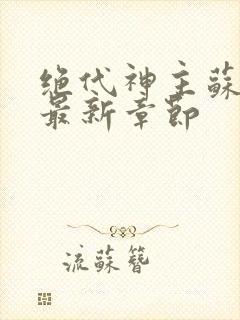 绝代神主蘇
最新章節
流蘇簪